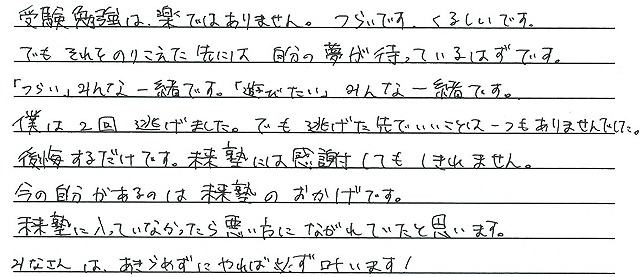 受験勉強は、楽ではありません。つらいです、くるしいです。
でもそれをのりこえた先には自分の夢が待っているはずです。
「つらい」みんな一緒です。「遊びたい」みんな一緒です。
僕は2回逃げました。でも逃げた先でいいことは一つもありませんでした。
後悔するだけです。未来塾には感謝してもしきれません。
今の自分があるのは未来塾のおかげです。
未来塾に入っていなかったら悪い方にながれていたと思います。
みなさんは、あきらめずにやれば必ず叶います!